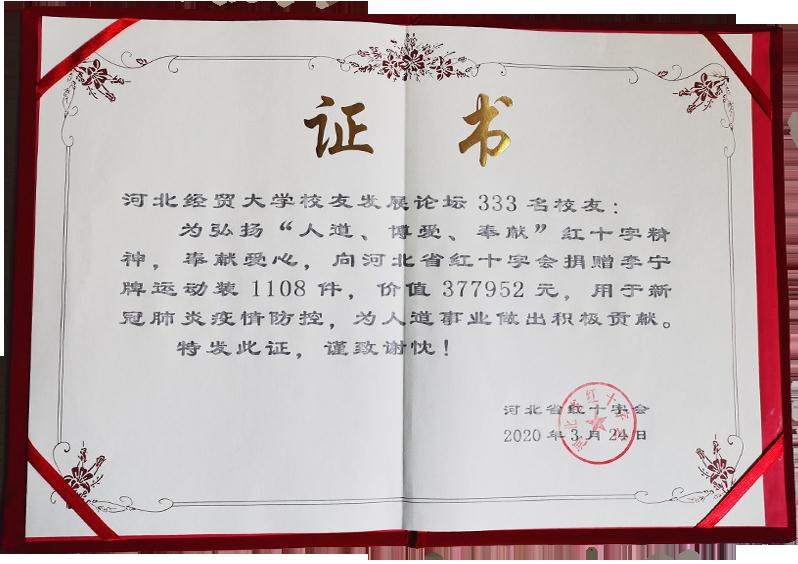 证书
河北经贸大学校友发展论坛333名校友：
为弘扬“人道、博爱、奉献”红十字精
神，奉献爱心，向河北省红十字会捐赠李宁
牌运动装1108件，价值377952元，用于新
冠肺炎疫情防控，为人道事业做出积极贡献。
特发此证，谨致谢忱！
河北省红十字会
2020年3月24日
河北省红十字会